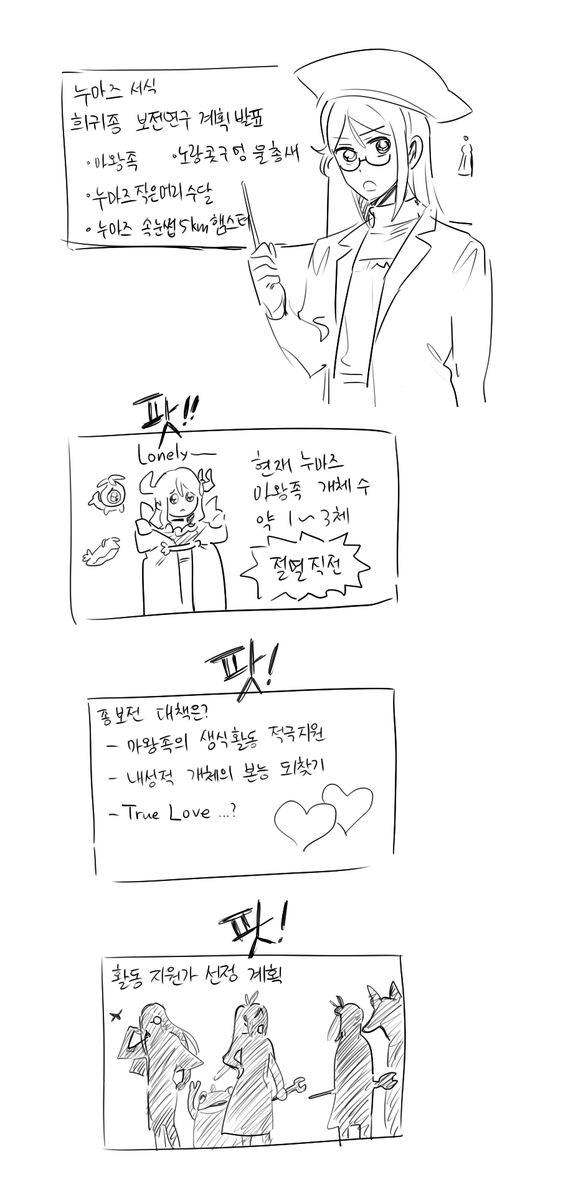 누마즈 서식
희귀종 보전연구 계획 발표
· 마왕족 · 노랑콧구멍 물총새
· 누마즈 작은머리 수달
· 누마즈 속눈썹 5km 햄스터
팟!!
Lonely—
현재 누마즈
마왕족 개체 수
약 1~3체
절멸 직전
팟!
종보전 대책은?
- 마왕족의 생식활동 적극지원
- 내성적 개체의 본능 되찾기
- True Love ...?
팟!
활동 지원가 선정 계획